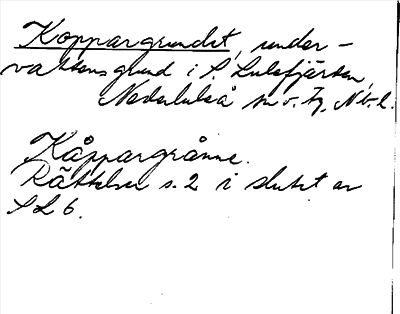 Koppargrundet, under-
vattensgrund i S. Lulefjärden,
Nederluleå sn o. tg, Nb. l.
Kåppargrånne.
Rättelser s. 2 i slutet av
SL 6.